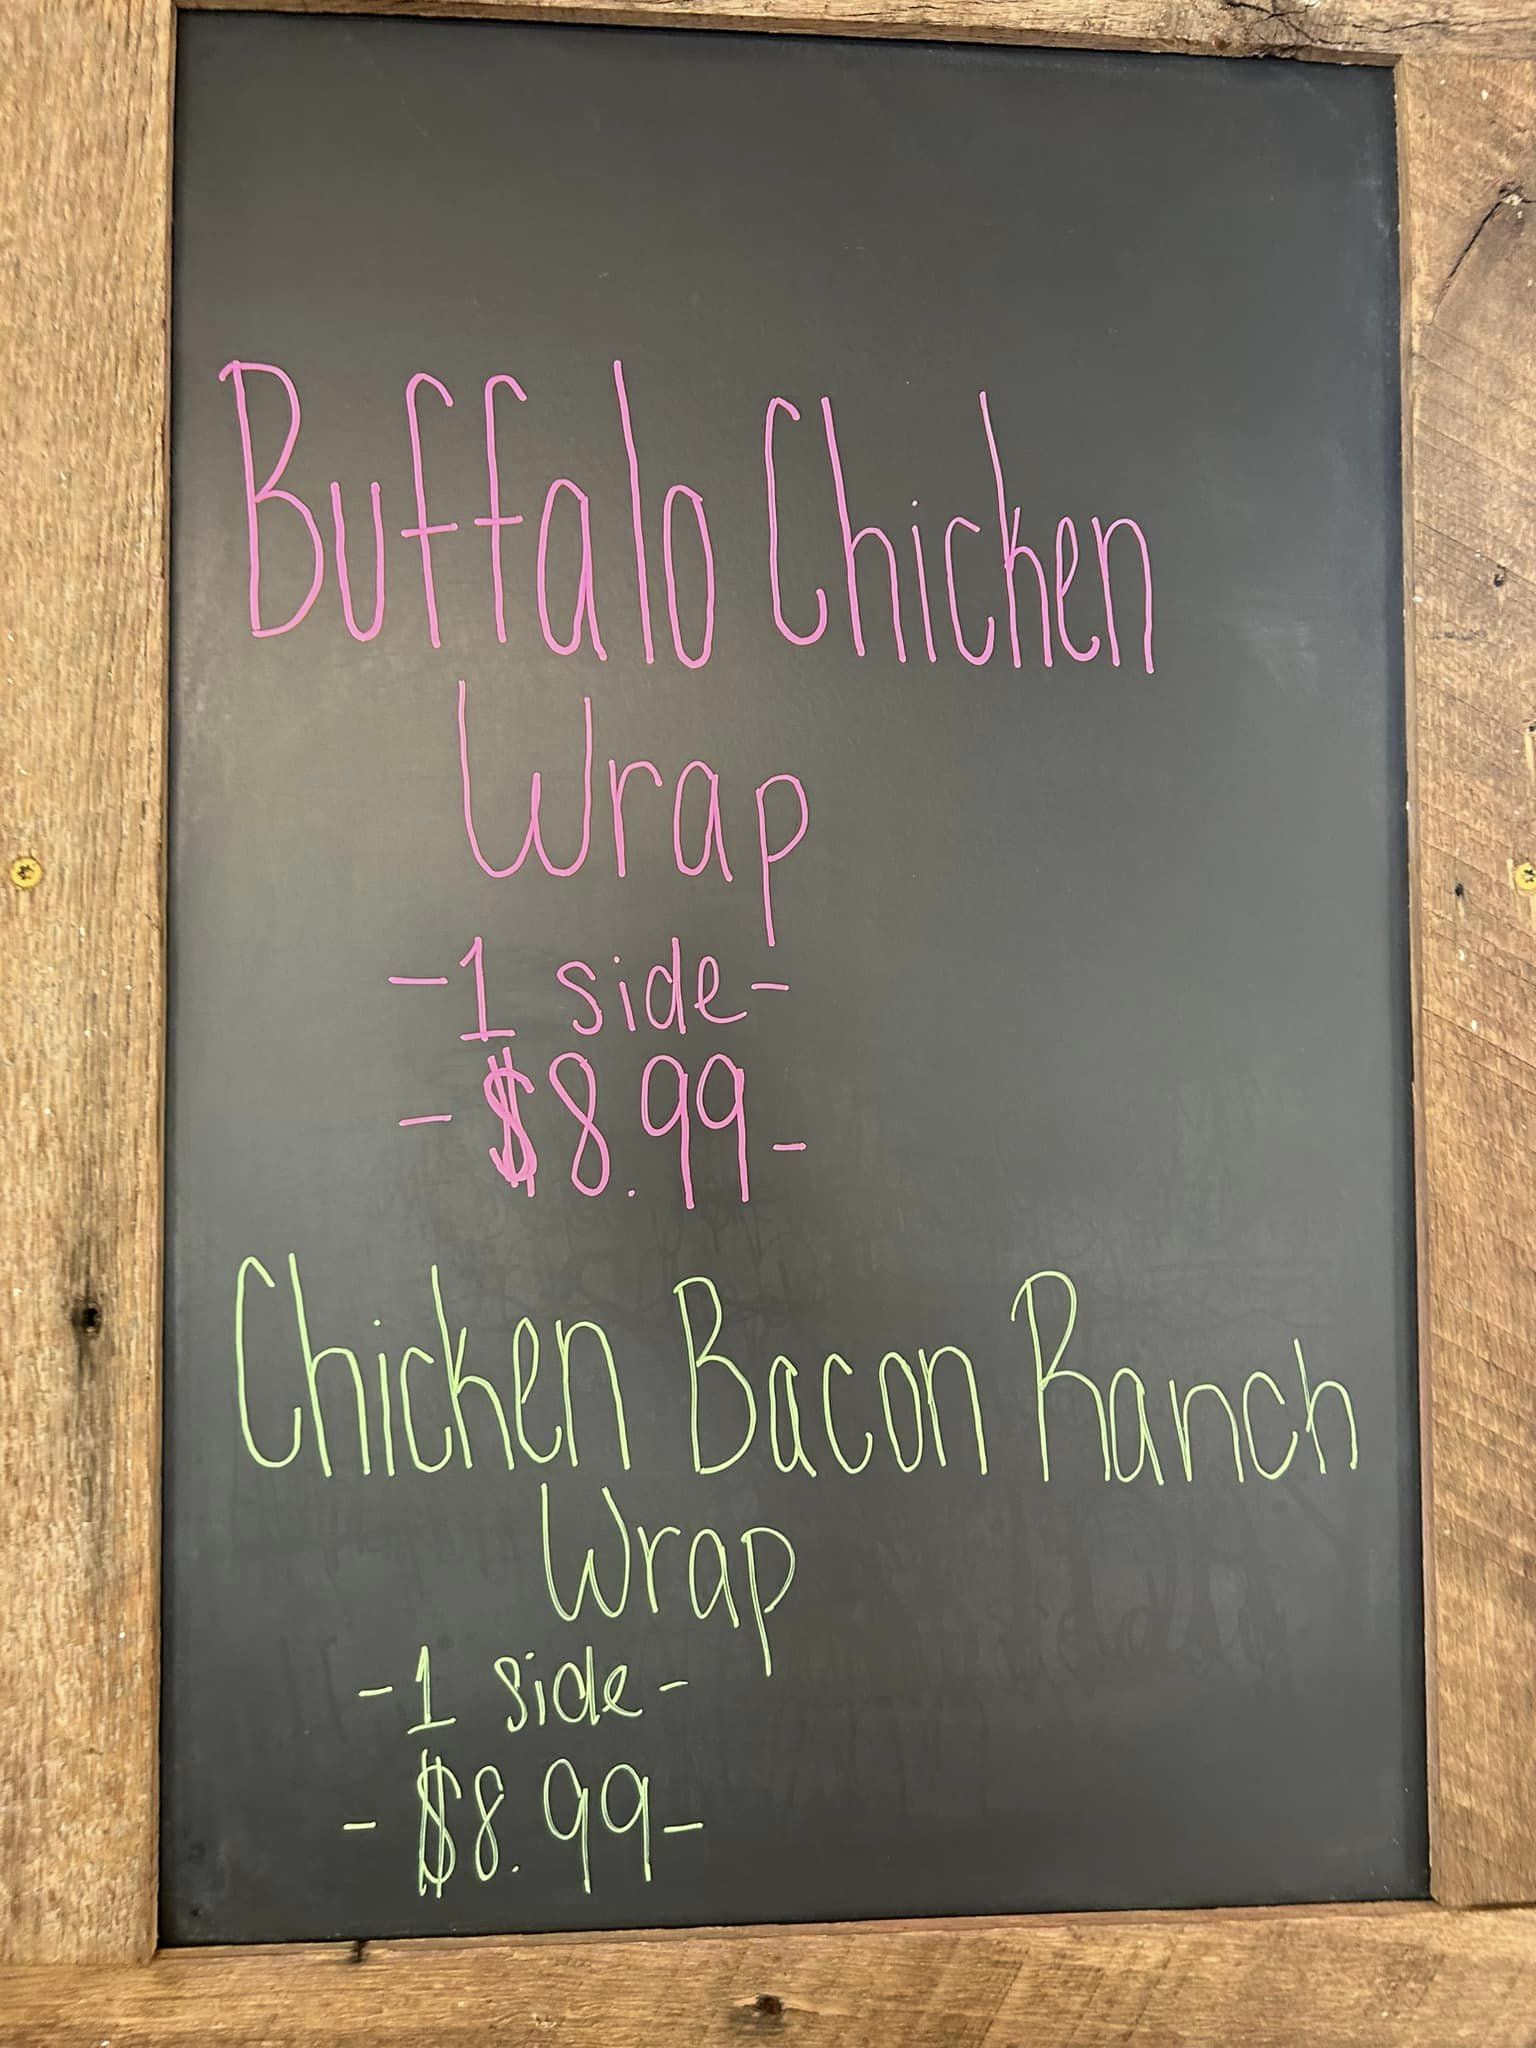 Buffalo Chicken
Wrap
-1 side-
-$8.99-
Chicken Bacon Ranch
Wrap
-1 side-
-$8.99-